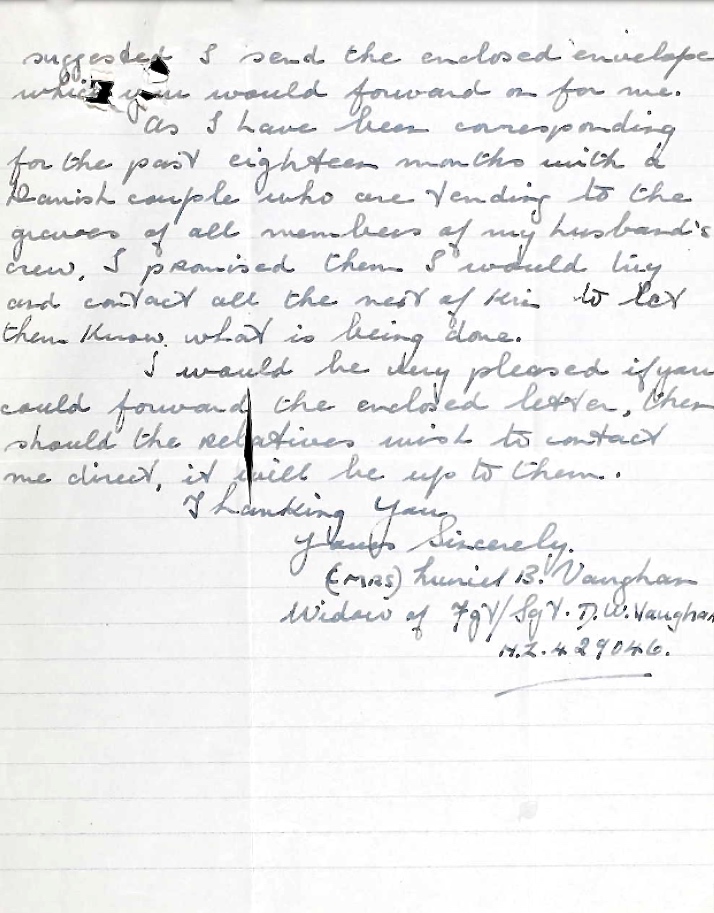 suggested I send the enclosed envelope
which you would forward on for me.
As I have been corresponding
for the past eighteen months with a
Danish couple who are tending to the
graves of all members of my husband's
crew, I promised them I would try
and contact all the next of kin to let
them know what is being done.
I would be very pleased if you
could forward the enclosed letter, then
should the relatives wish to contact
me direct, it will be up to them.
Thanking You
Yours Sincerely.
(MRS) B. Vaughan
Widow of Flgt/Sgt. D.W. Vaughan
N.Z. 429046.